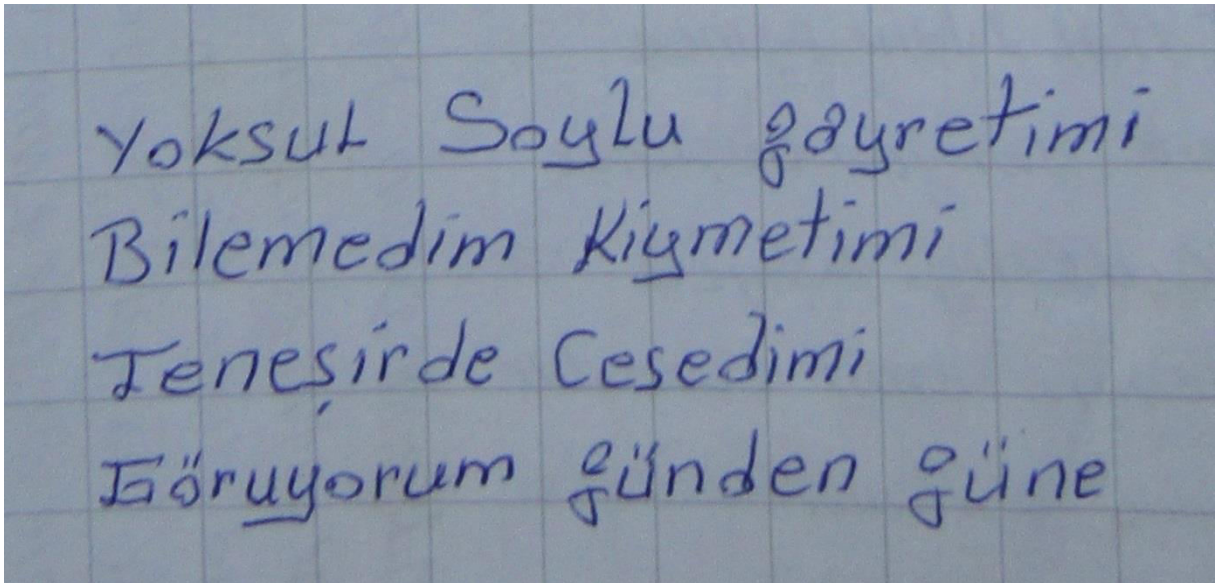 Yoksul Soylu gayretimi
Bilemedim Kiymetimi
Teneşirde Cesedimi
Göruyorum günden güne